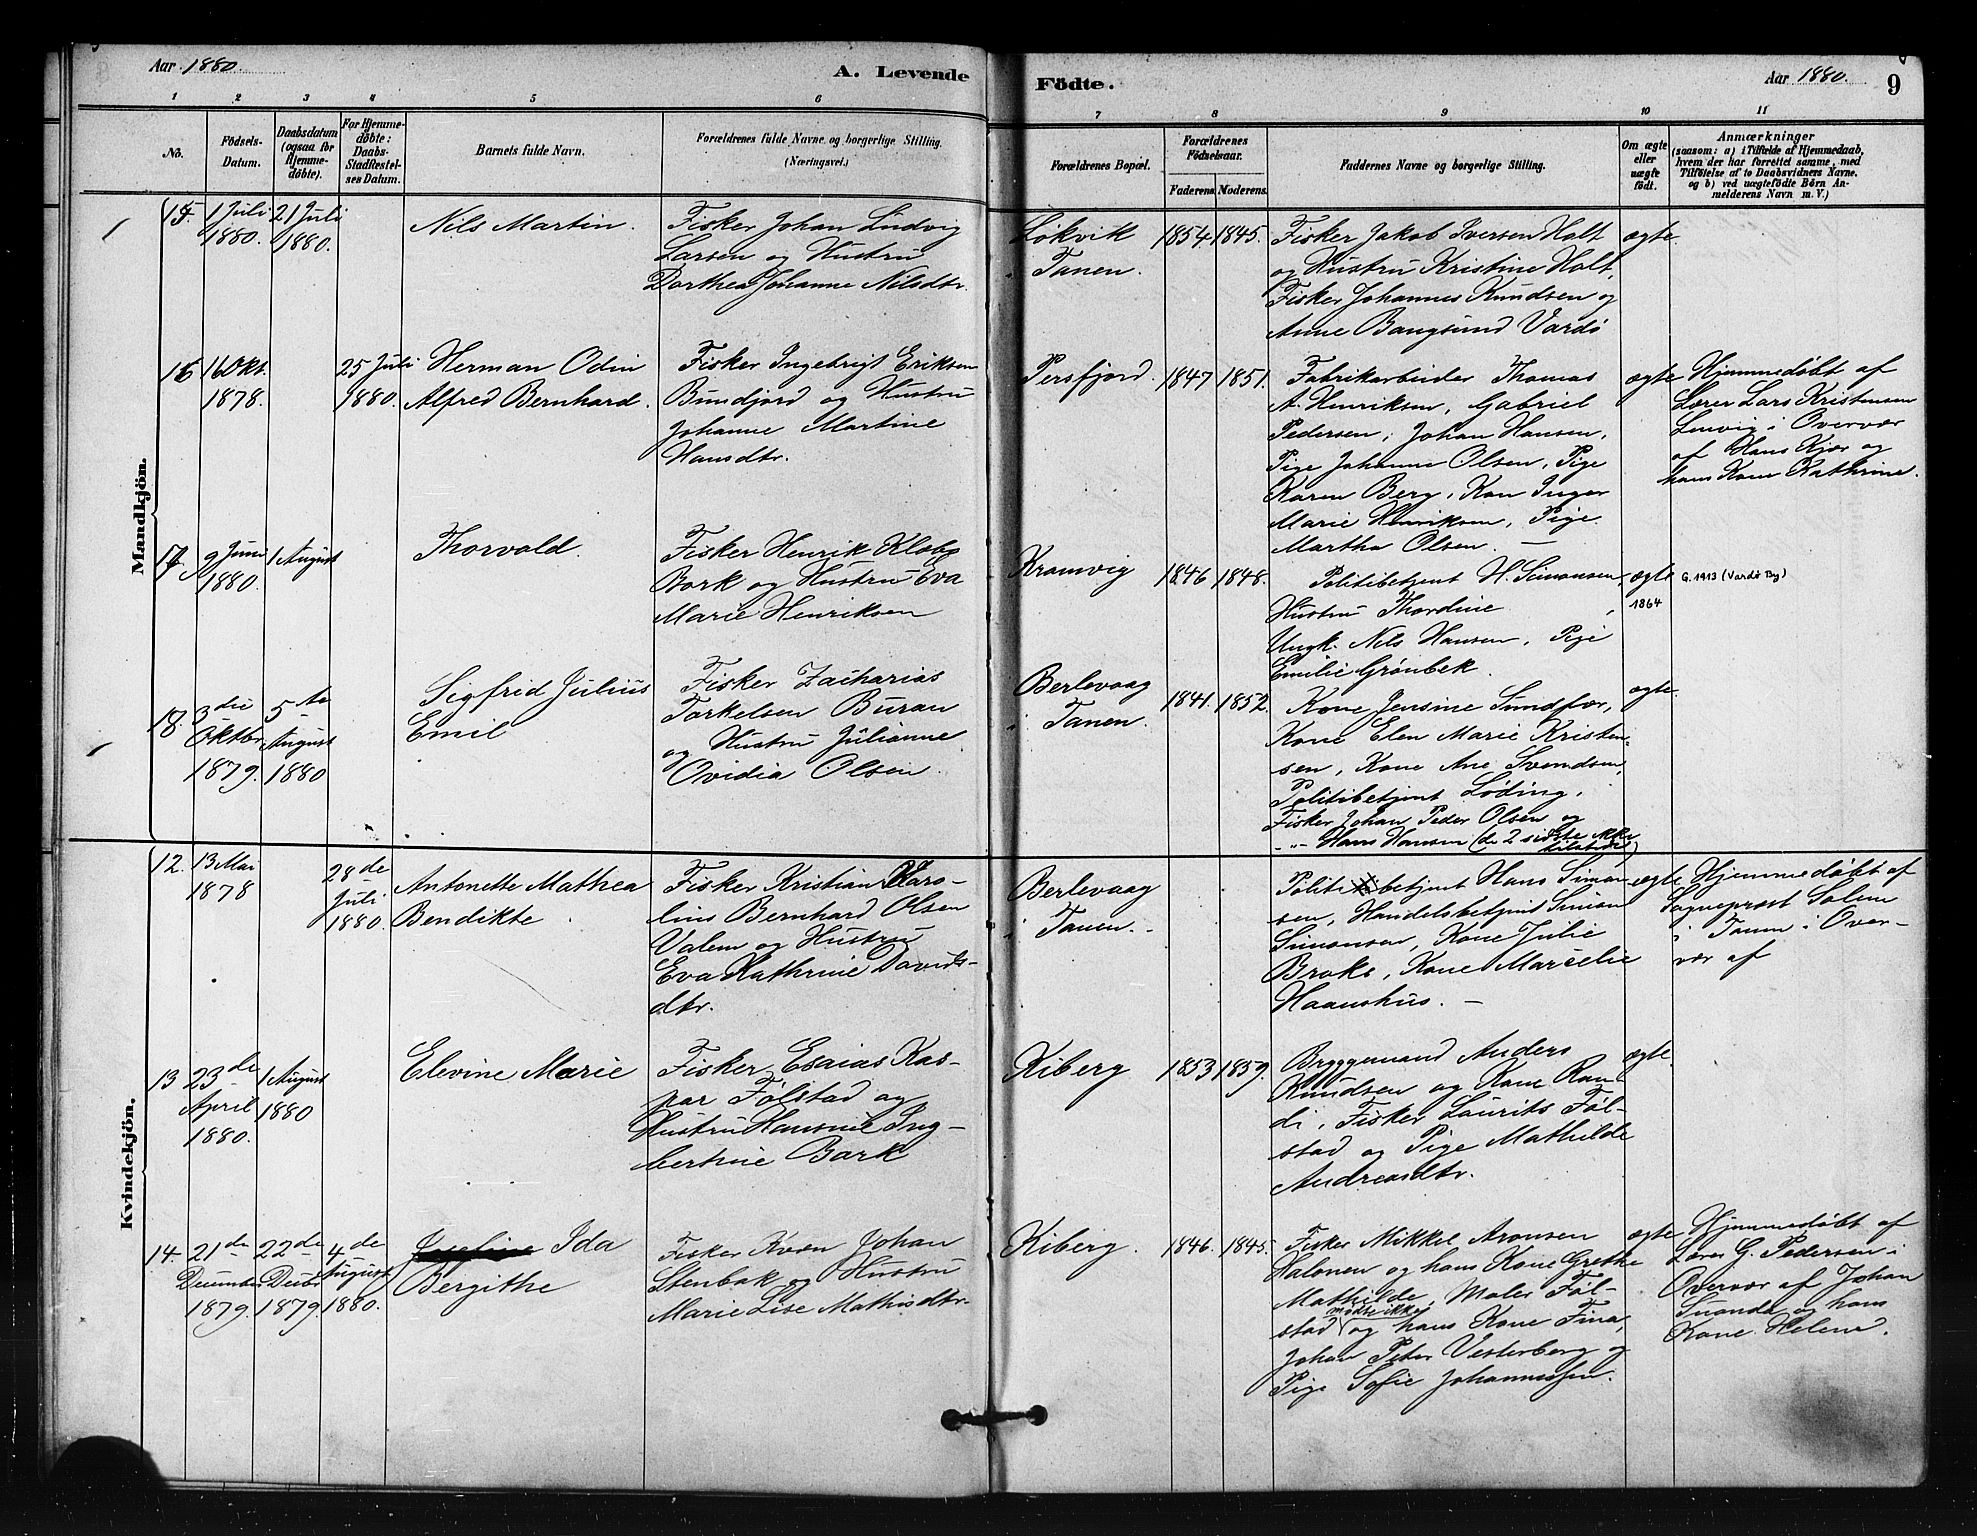 Aar 1880.
A. Levende
Födte.
Aar 1880.
9
1 2 3 4 5 6 7 8 9 10 11
No.
Födsels-
Datum.
Daabsdatum
(ogsaa for
Hjemme-
døbte).
For Hjemme-
døbte:
Daabs-
Stadfæstel-
ses Datum.
Barnets fulde Navn.
Forældrenes fulde Navne og borgerlige Stilling.
(Næringsvei.)
Forældrenes Bopæl.
Forældrenes
Födselsaar.
Faderens. Moderens.
Faddernes Navne og borgerlige Stilling.
Om ægte
eller
uægte
födt.
Anmærkninger
(saasom: a) i Tilfælde af Hjemmedaab,
hvem der har forrettet samme, med
Tilföielse af to Daabsvidners Navne.
og b) ved uægtefödte Börn An-
melderens Navn m. V.)
Mandkjön.
15.
1 Juli
1880.
21 Juli
1880.
Nils Martin.
Fisker Johan Ludvig
Larsen og Hustru
Dorthea Johanne Nilsdtr.
Løkvik
Tanen.
1854 1845.
Fisker Jakob Iversen Holt
og Hustru Kristine Holt,
Fisker Johannes Knudsen og
Anne Bangsund Vardø
ægte
16
16 Okt.
1878.
25 Juli
1880.
Herman Odin
Alfred Bernhard.
Fisker Ingebrigt Eriksen
Bundjord og Hustru
Johanne Martine
Hansdtr.
Persfjord.
1847 1851.
Fabrikarbeider Thomas
A. Henriksen, Gabriel
Pedersen, Johan Hansen,
Pige Johanne Olsen, Pige
Karen Berg, Kon Inger
Marie Henriksen, Pige
Martha Olsen.
ægte
Hjemmedøbt af
Lærer Lars Kristensen
Lenvig i Overvær
af Hans Kjær og
hans Kone Kathrine.
17
9 Juni
1880.
1 August
Thorvald.
Fisker Henrik
Bork og Hustru Eva
Marie Henriksen
Kramvig
1846 1848.
Politibetjent H. Simonsen,
Hustru Thordine
Ungk. Nils Hansen, Pige
Emilie Grønbek.
ægte
1864
G. 1913 (Vardø By)
18.
3die
Oktbr.
1879.
5te
August
1880
Sigfrid Julius
Emil
Fisker Zacharias
Torkelsen Buran
og Hustru Julianne
Ovidia Olsen.
Berlevaag
i Tanen.
1841. 1852.
Kone Jensine Sundfær,
Kone Elen Marie Kristen-
sen, Kone Ane Svendsen,
Politibetjent Løding,
Fisker Johan Peder Olsen og
-"- Hans Hansen (de 2 sidste ikke
tilstede)
ægte.
Kvindekjön.
12.
13 Mai
1878
28de
Juli
1880.
Antonette Mathea
Bendikte
Fisker Kristian Karo-
lius Bernhard Olsen
Valem og Hustru
Eva Kathrine Davids-
dtr.
Berlevaag
i Tanen.
Politibetjent Hans Simon-
sen, Handelsbetjent Simon
Simonsen, Kone Julie
Broks, Kone Marselie
Haanshus.
ægte
Hjemmedøbt af
Sogneprest Solem
i Tanen i Over-
vær af
13
23de
April
1880.
1 August
1880
Elevine Marie
Fisker Esaias Kas-
par Følstad og
Hustru Hansine Ing-
bertine Bark
Kiberg
1853 1859.
Bryggemand Anders
Knudsen og Kone Ran-
di, Fisker Laurits Føl-
stad og Pige Mathilde
Andreasdtr.
ægte
14.
21de
December
1879.
22de
Decbr
1879
4de
August
1880.
Josefine Ida
Bergithe
Fisker Kvæn Johan
Stenbak og Hustru
Marie Lise Mathisdtr.
Kiberg.
1846. 1845.
Fisker Mikkel Aronsen
Halonen og hans Kone Grethe
Mathilde, Maler Føl-
stad (mødte ikke) og hans Kone Fina,
Johan Peter Vesterberg og
Pige Sofie Johannessen.
ægte
Hjemmedøbt af
Lærer G. Pedersen i
Overvær af Johan
og hans
Kone Helene.